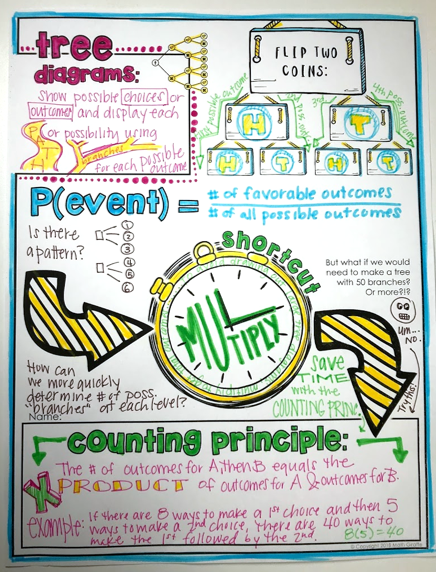 tree
diagrams:
show possible choices or
outcomes and display each
PATH or possibility using
branches
for each possible
outcome
FLIP TWO
COINS:
H
T
H
T
H
T
P(event) = # of favorable outcomes
# of all possible outcomes
Is there
a pattern?
1
2
3
4
5
6
shortcut
MULTIPLY
But what if we would
need to make a tree
with 50 branches?
Or more?!?
Um...
NO.
Try this!
How can
we more quickly
determine # of poss.
"branches" at each level?
Name:
SAVE
TIME
with the
COUNTING PRINC.
counting principle:
The # of outcomes for A, then B equals the
PRODUCT of outcomes for A & outcomes for B.
example: If there are 8 ways to make a 1st choice and then 5
ways to make a 2nd choice, there are 40 ways to
make the 1st followed by the 2nd. 8(5)=40